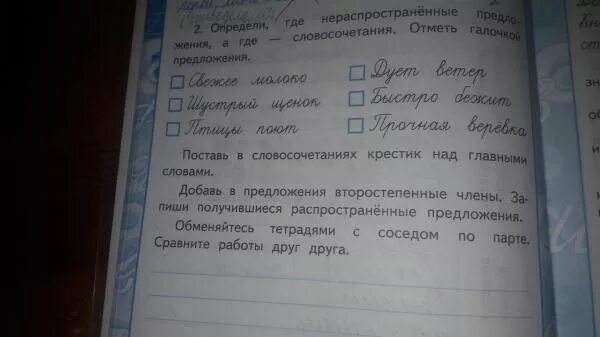 2. Определи, где нераспространённые предло-
жения, а где — словосочетания. Отметь галочкой
предложения.
Свежее молоко Дует ветер
Шустрый щенок Быстро бежит
Птицы поют Прочная верёвка
Поставь в словосочетаниях крестик над главными
словами.
Добавь в предложения второстепенные члены. За-
пиши получившиеся распространённые предложения.
Обменяйтесь тетрадями с соседом по парте.
Сравните работы друг друга.